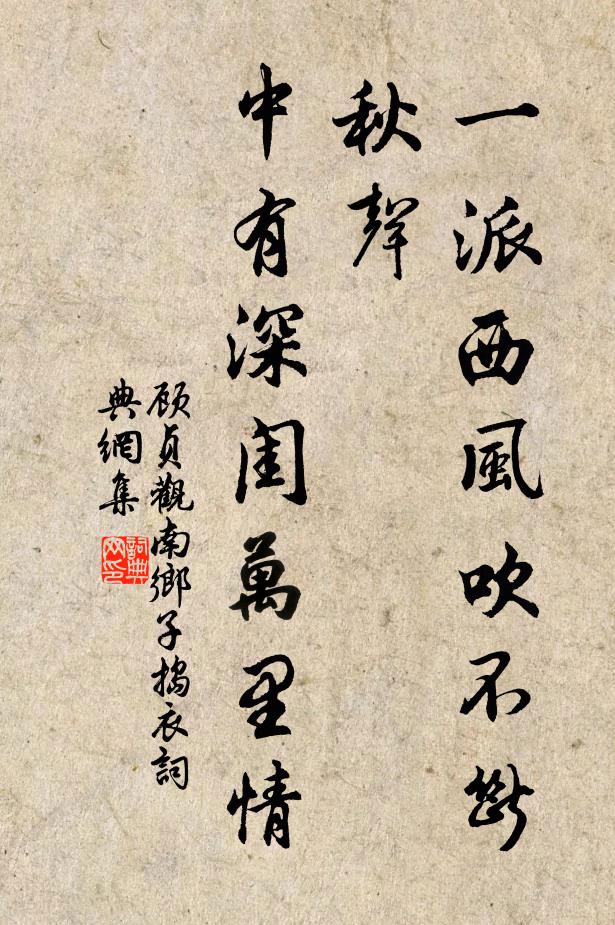 一派西風吹不斷
秋聲
中有深閨萬里情
顾貞觀南鄉子搗衣詞
典網集
詞典
网印